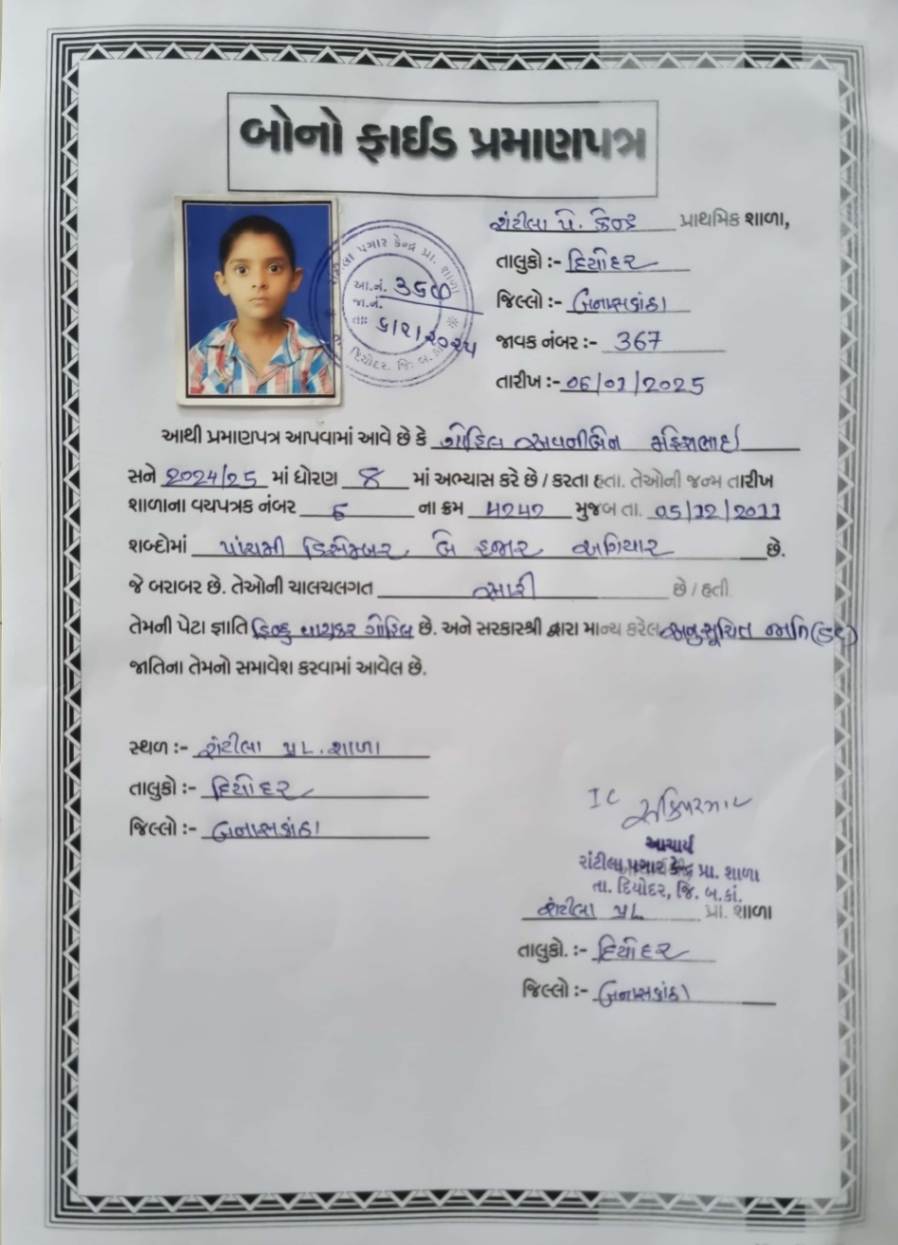 બોનો ફાઈડ પ્રમાણપત્ર
રાંટીલા પે. કેન્દ્ર પ્રાથમિક શાળા,
તાલુકો :- દિયોદર
જિલ્લો :- બનાસકાંઠા
જાવક નંબર :- 367
તારીખ :- 06/01/2025
પગાર કેન્દ્ર પ્રા. શાળા
આ.નં. ૩૬૭
જા.નં.
તાઃ ૬/૧/૨૦૨૫
દિયોદર. જિ. બ.કાં
આથી પ્રમાણપત્ર આપવામાં આવે છે કે ગોહિલ અવનીબેન
સને ૨૦૨૪/૨૫ માં ધોરણ ૪ માં અભ્યાસ કરે છે / કરતા હતા. તેઓની જન્મ તારીખ
શાળાના વયપત્રક નંબર ના ક્રમ ૫૨૫૨ મુજબ તા. 05/12/2011
શબ્દોમાં પાંચમી ડિસેમ્બર બે હજાર અગિયાર છે.
જે બરાબર છે. તેઓની ચાલચલગત સારી છે / હતી
તેમની પેટા જ્ઞાતિ હિન્દુ ગોહિલ છે. અને સરકારશ્રી દ્વારા માન્ય કરેલ અનુસૂચિત જાતિ
જાતિના તેમનો સમાવેશ કરવામાં આવેલ છે.
સ્થળ :- રાંટીલા પ્રા. શાળા
તાલુકો :- દિયોદર
જિલ્લો :- બનાસકાંઠા
IC
આચાર્ય
રાંટીલા પગાર કેન્દ્ર પ્રા. શાળા
તા. દિયોદર, જિ. બ.કાં.
રાંટીલા પ્રા. શાળા
તાલુકો. :- દિયોદર
જિલ્લો :- બનાસકાંઠા